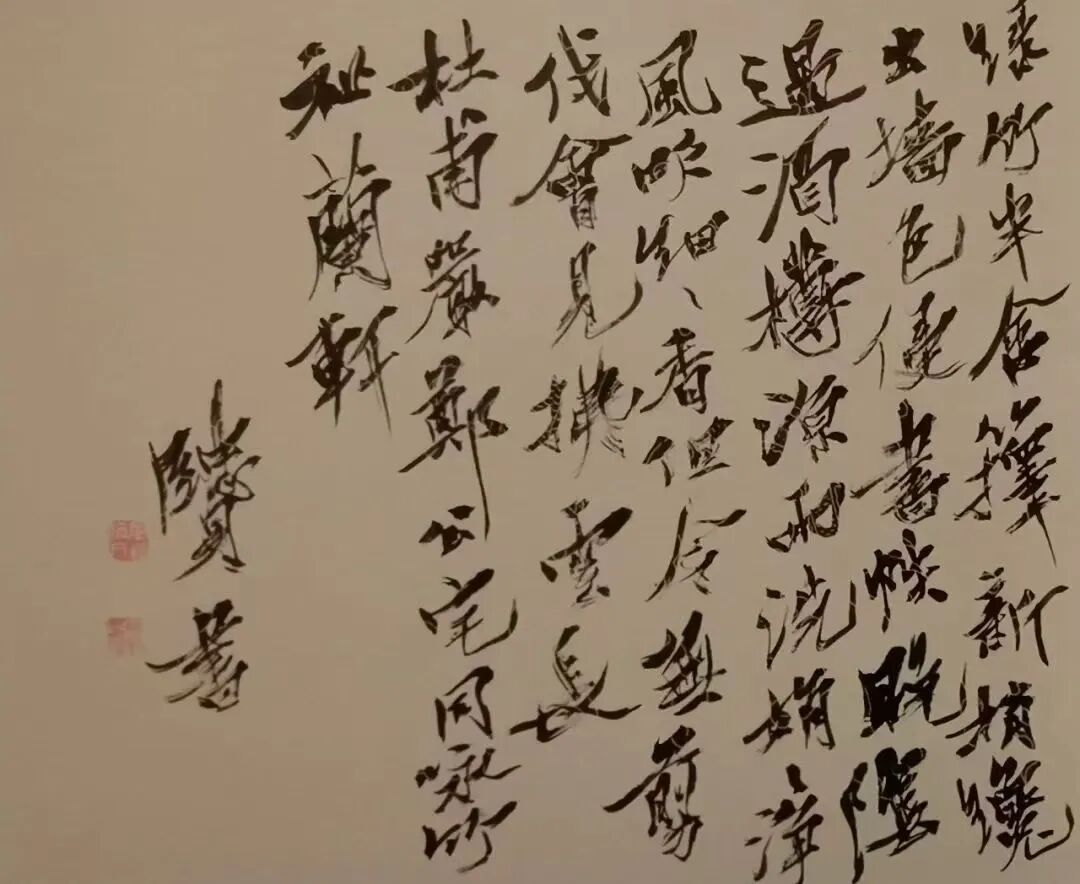 綠竹半含籜新梢纔
出墻色侵書帙晚陰
過酒樽涼雨洗娟〻淨
風吹細〻香但令無剪
伐會見拂雲長
杜甫嚴鄭公宅同咏竹
祉蘭軒
書